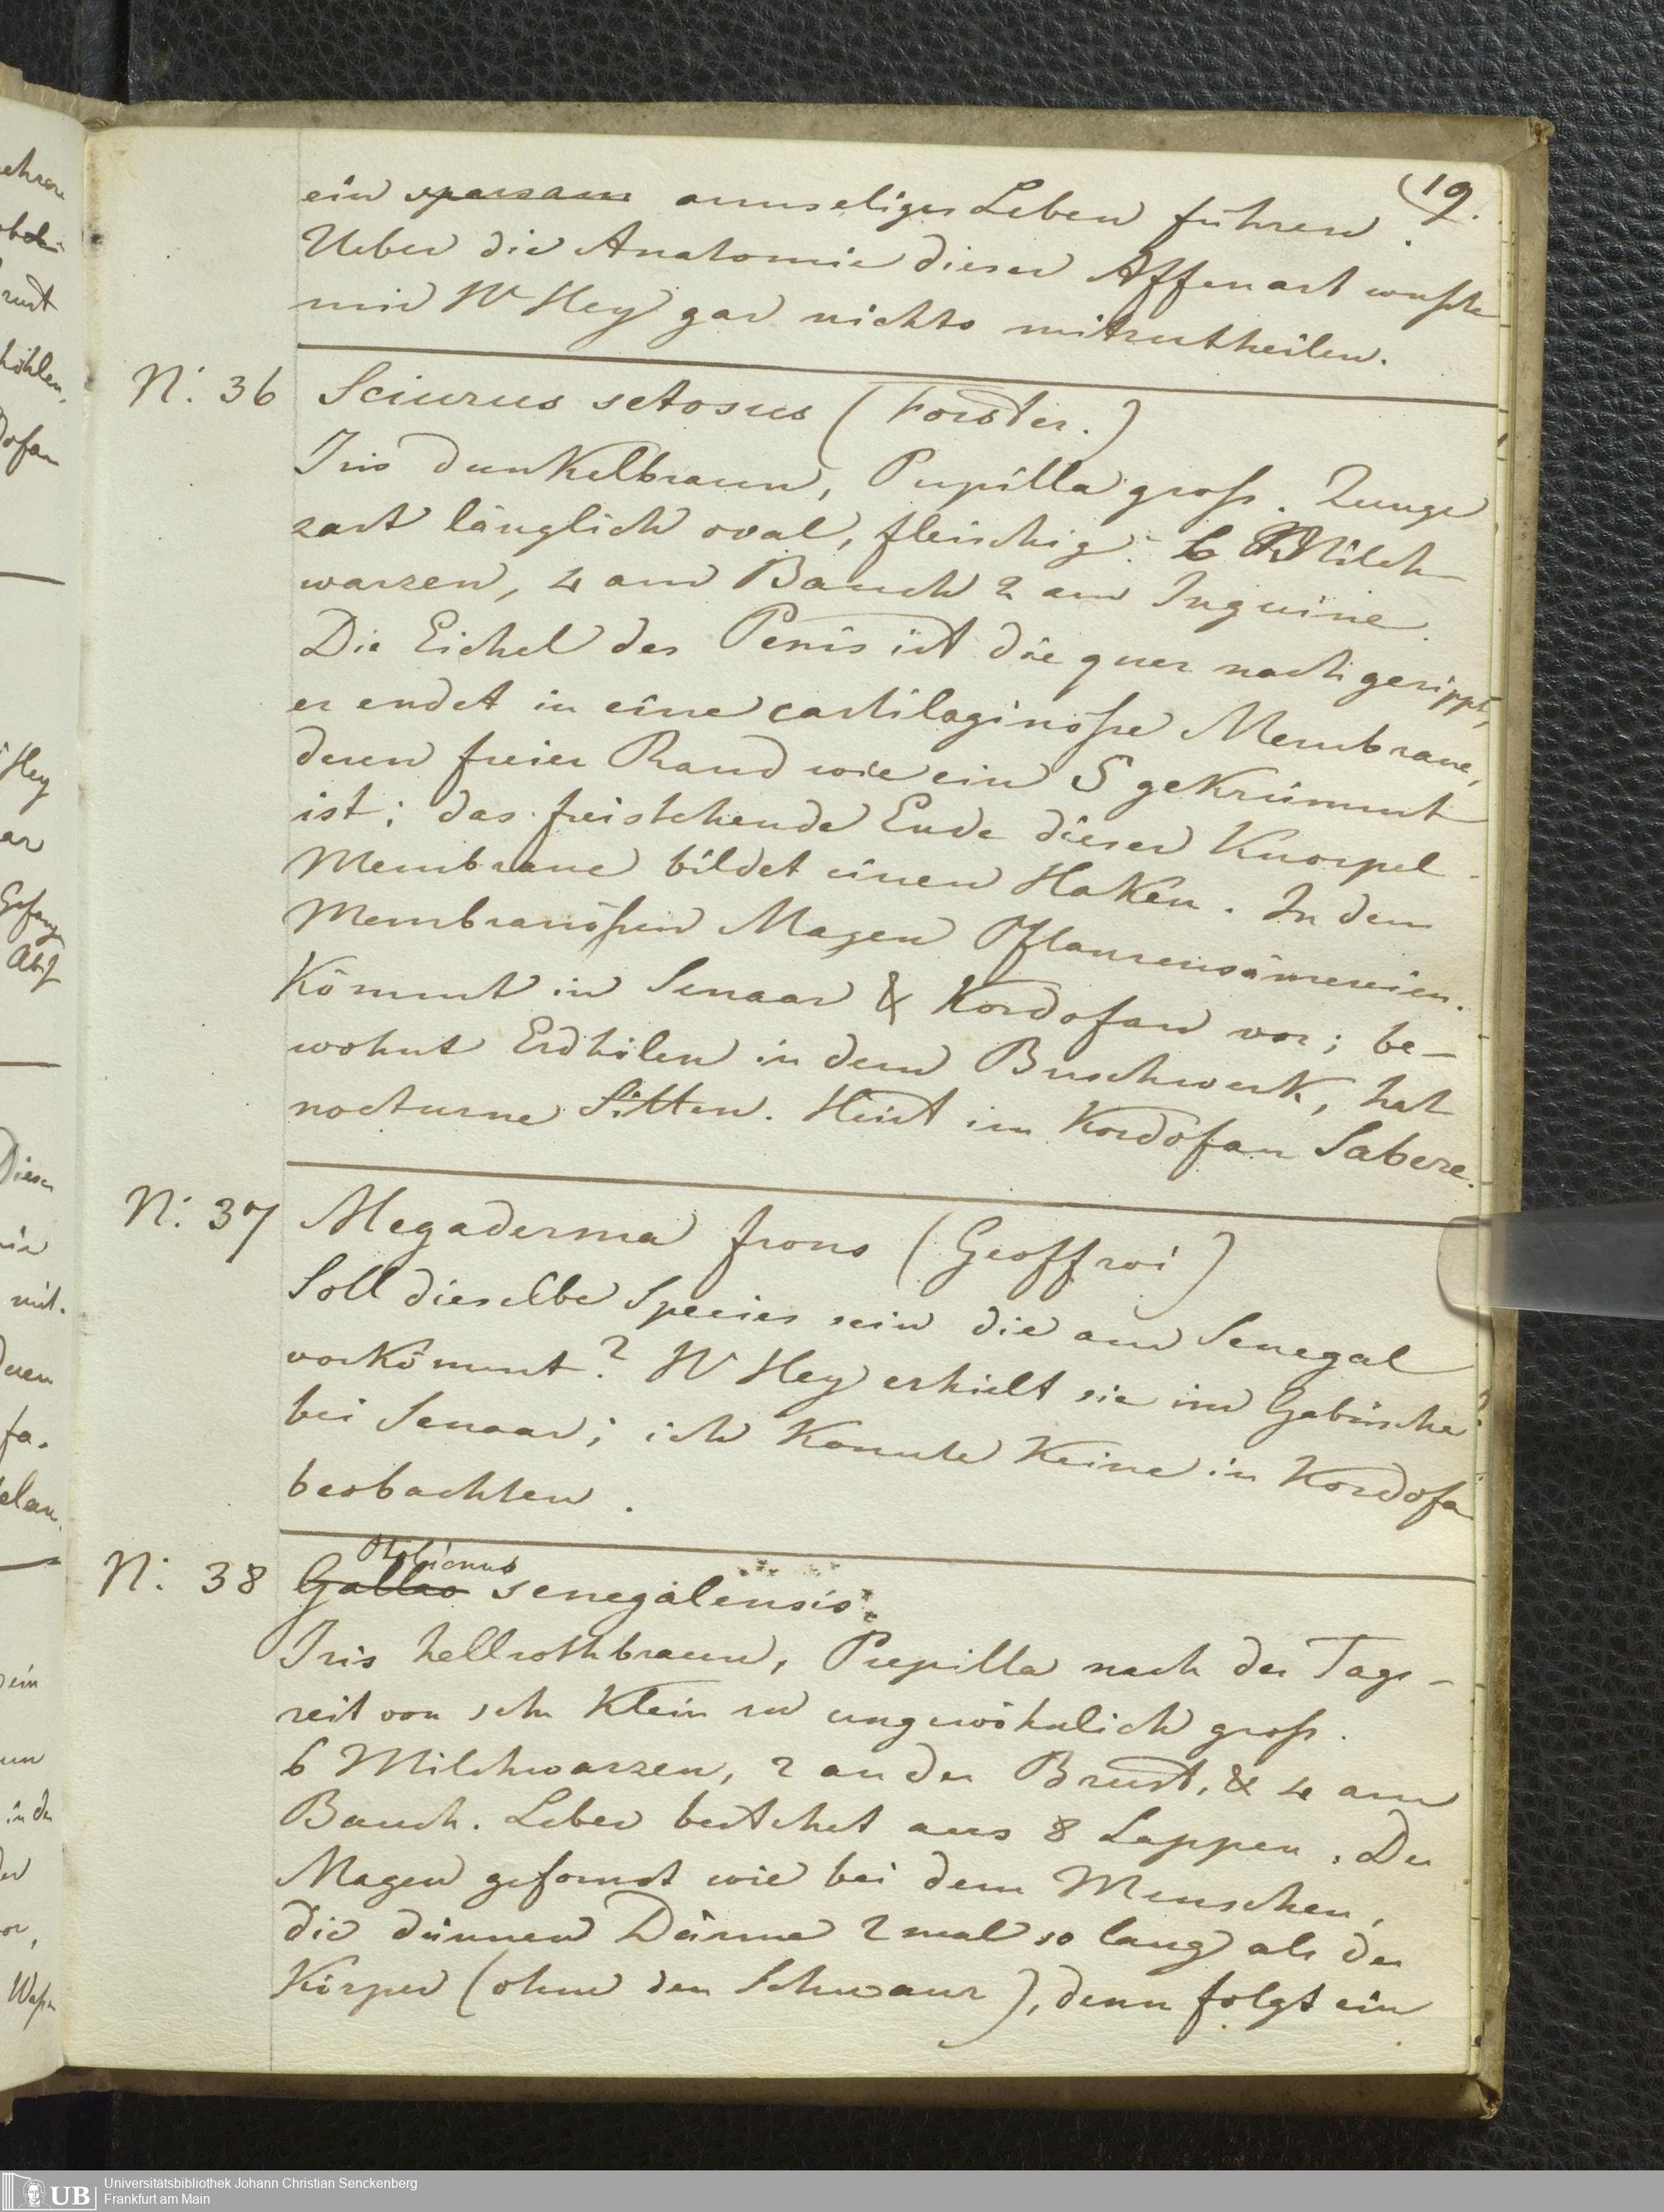 19.
ein sparsam armseliges Leben führen.
Ueber die Anatomie dieser Affenart wußte
mir W Hey gar nichts mitzutheilen.
N: 36 Sciurus setosus (Forster.)
Iris dunkelbraun, Pupilla groß. Zunge
zart länglich oval, fleischig. 6 Milch
warzen, 4 am Bauch 2 am Inguine.
Die Eichel des Penis ist die quer nach gerippt,
er endet in eine cartilaginöße Membrane,
deren freier Rand wie ein S gekrümmt
ist; das freistehende Ende dieser Knorpel-
Membrane bildet einen Haken. In dem
Membranößen Magen Pflanzensämereien.
Kömmt in Senaar & Kordofan vor; be-
wohnt Erdhölen in dem Buschwerk, hat
nocturne Sitten. Heist im Kordofan Sabere.
N: 37 Megaderma frons (Geoffroi)
Soll dieselbe Species sein die am Senegal
vorkömmt? W Hey erhielt sie im Gebüsche
bei Senaar; ich konnte keine in Kordofa
beobachten.
N: 38 Otolicnus
Gallao senegalensis.
Iris hellrothbraun, Pupilla nach der Tags-
zeit von sehr klein zu ungewöhnlich groß.
6 Milchwarzen, 2 an der Brust, & 4 am
Bauch. Leber bestehet aus 8 Lappen. Der
Magen geformt wie bei dem Menschen,
die dünnen Därme 2 mal so lang als der
Körper (ohne den Schwanz), denn folgt ein
UB Universitätsbibliothek Johann Christian Senckenberg
Frankfurt am Main